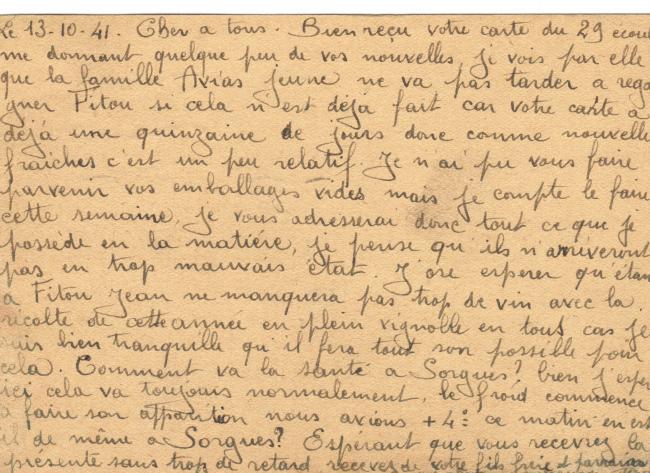 Le 13-10-41. Cher a tous. Bien reçu votre carte du 29 ecoulé
me donnant quelque peu de vos nouvelles, je vois par elle
que la famille Avias jeune ne va pas tarder a rega
gner Fitou si cela n'est déjà fait car votre carte a
déjà une quinzaine de jours donc comme nouvelle
fraiches c'est un peu relatif. Je n'ai pu vous faire
parvenir vos emballages vides mais je compte le faire
cette semaine, je vous adresserai donc tout ce que je
possède en la matière, je pense qu'ils n'arriveront
pas en trop mauvais état. J'ose esperer qu'étant
a Fitou Jean ne manquera pas trop de vin avec la
récolte de cette année en plein vignolle en tout cas je
suis bien tranquille qu'il fera tout son possible pour
cela. Comment va la santé a Sorgues? bien j'esper
ici cela va toujours normalement, le froid commence
a faire son apparition nous avions +4° ce matin en est
il de même a Sorgues? Esperant que vous recevrez la
présente sans trop de retard recevez de votre fils